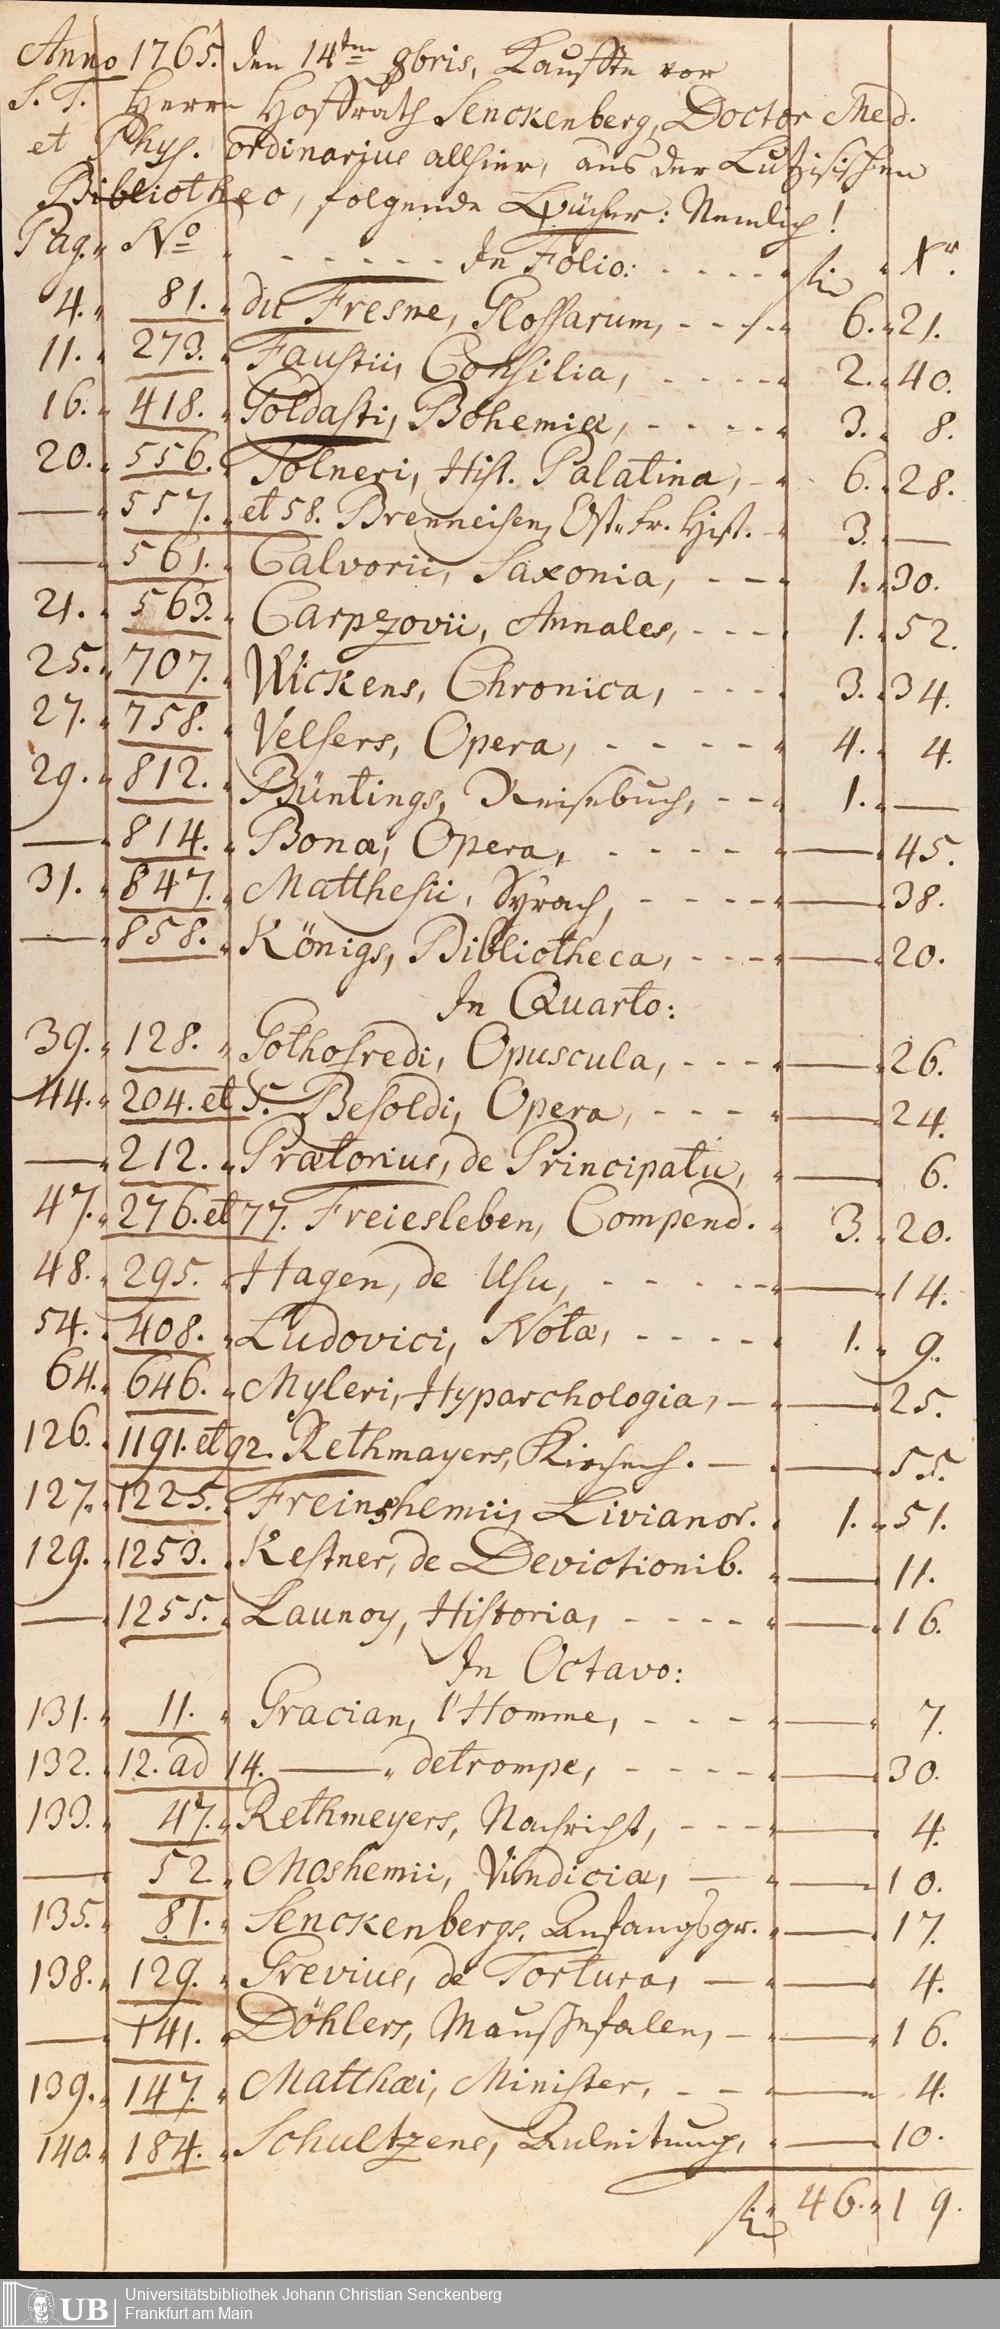 Anno 1765. den 14ten 9bris, Kauffte vor
S. T. Herrn Hoffrath Senckenberg, Doctor Med.
et Phys. ordinarius allhier, aus der Lutzischen
Bibliothec, folgende Bücher: Nemlich!
Pag. No ------ In Folio: ---- fl. Xr.
4. 81. du Fresne, Glossarum, --- 6. 21.
11. 273. Faustii, Consilia, ---- 2. 40.
16. 418. Goldasti, Bohemiæ, ---- 3. 8.
20. 556. Tolneri, Hist. Palatina, - 6. 28.
— 557. et 58. Brenneisen, Ost. Fr. Hist. - 3. —
— 561. Calvorii, Saxonia, --- 1. 30.
21. 563. Carpzovii, Annales, --- 1. 52.
25. 707. Wickens, Chronica, --- 3. 34.
27. 758. Velsers, Opera, ---- 4. 4.
29. 812. Büntings, Reisebuch, -- 1. —
— 814. Bonæ, Opera, ---- — 45.
31. 847. Matthesii, Syrach, ---- — 38.
— 858. Königs, Bibliotheca, --- — 20.
In Quarto:
39. 128. Gothofredi, Opuscula, --- — 26.
44. 204. et 5. Besoldi, Opera, --- — 24.
— 212. Prætorius, de Principatu, — 6.
47. 276. et 77. Freiesleben, Compend. 3. 20.
48. 295. Hagen, de Usu, ----- — 14.
54. 408. Ludovici, Nota, ---- 1. 9.
64. 646. Myleri, Hyparchologia, - — 25.
126. 1191. et 92. Rethmayers, Kirchenh. - — 55.
127. 1225. Freinshemii, Livianor. 1. 51.
129. 1253. Kestner, de Devictionib. — 11.
— 1255. Launoy, Historia, ---- — 16.
In Octavo:
131. 11. Gracian, l'Homme, --- — 7.
132. 12. ad 14. — detrompe, ---- — 30.
133. 47. Rethmeyers, Nachricht, --- — 4.
— 52 Moshemii, Vindiciæ, - — 10.
135. 81. Senckenbergs, Anfangsgr. — 17.
138. 129. Grevius, de Tortura, - — 4.
— 141. Döhlers, Mausefalen, - — 16.
139. 147. Matthæi, Minister, -- — 4.
140. 184. Schultzens, Anleitung, — 10.
fl. 46. 19.
Universitätsbibliothek Johann Christian Senckenberg
UB Frankfurt am Main